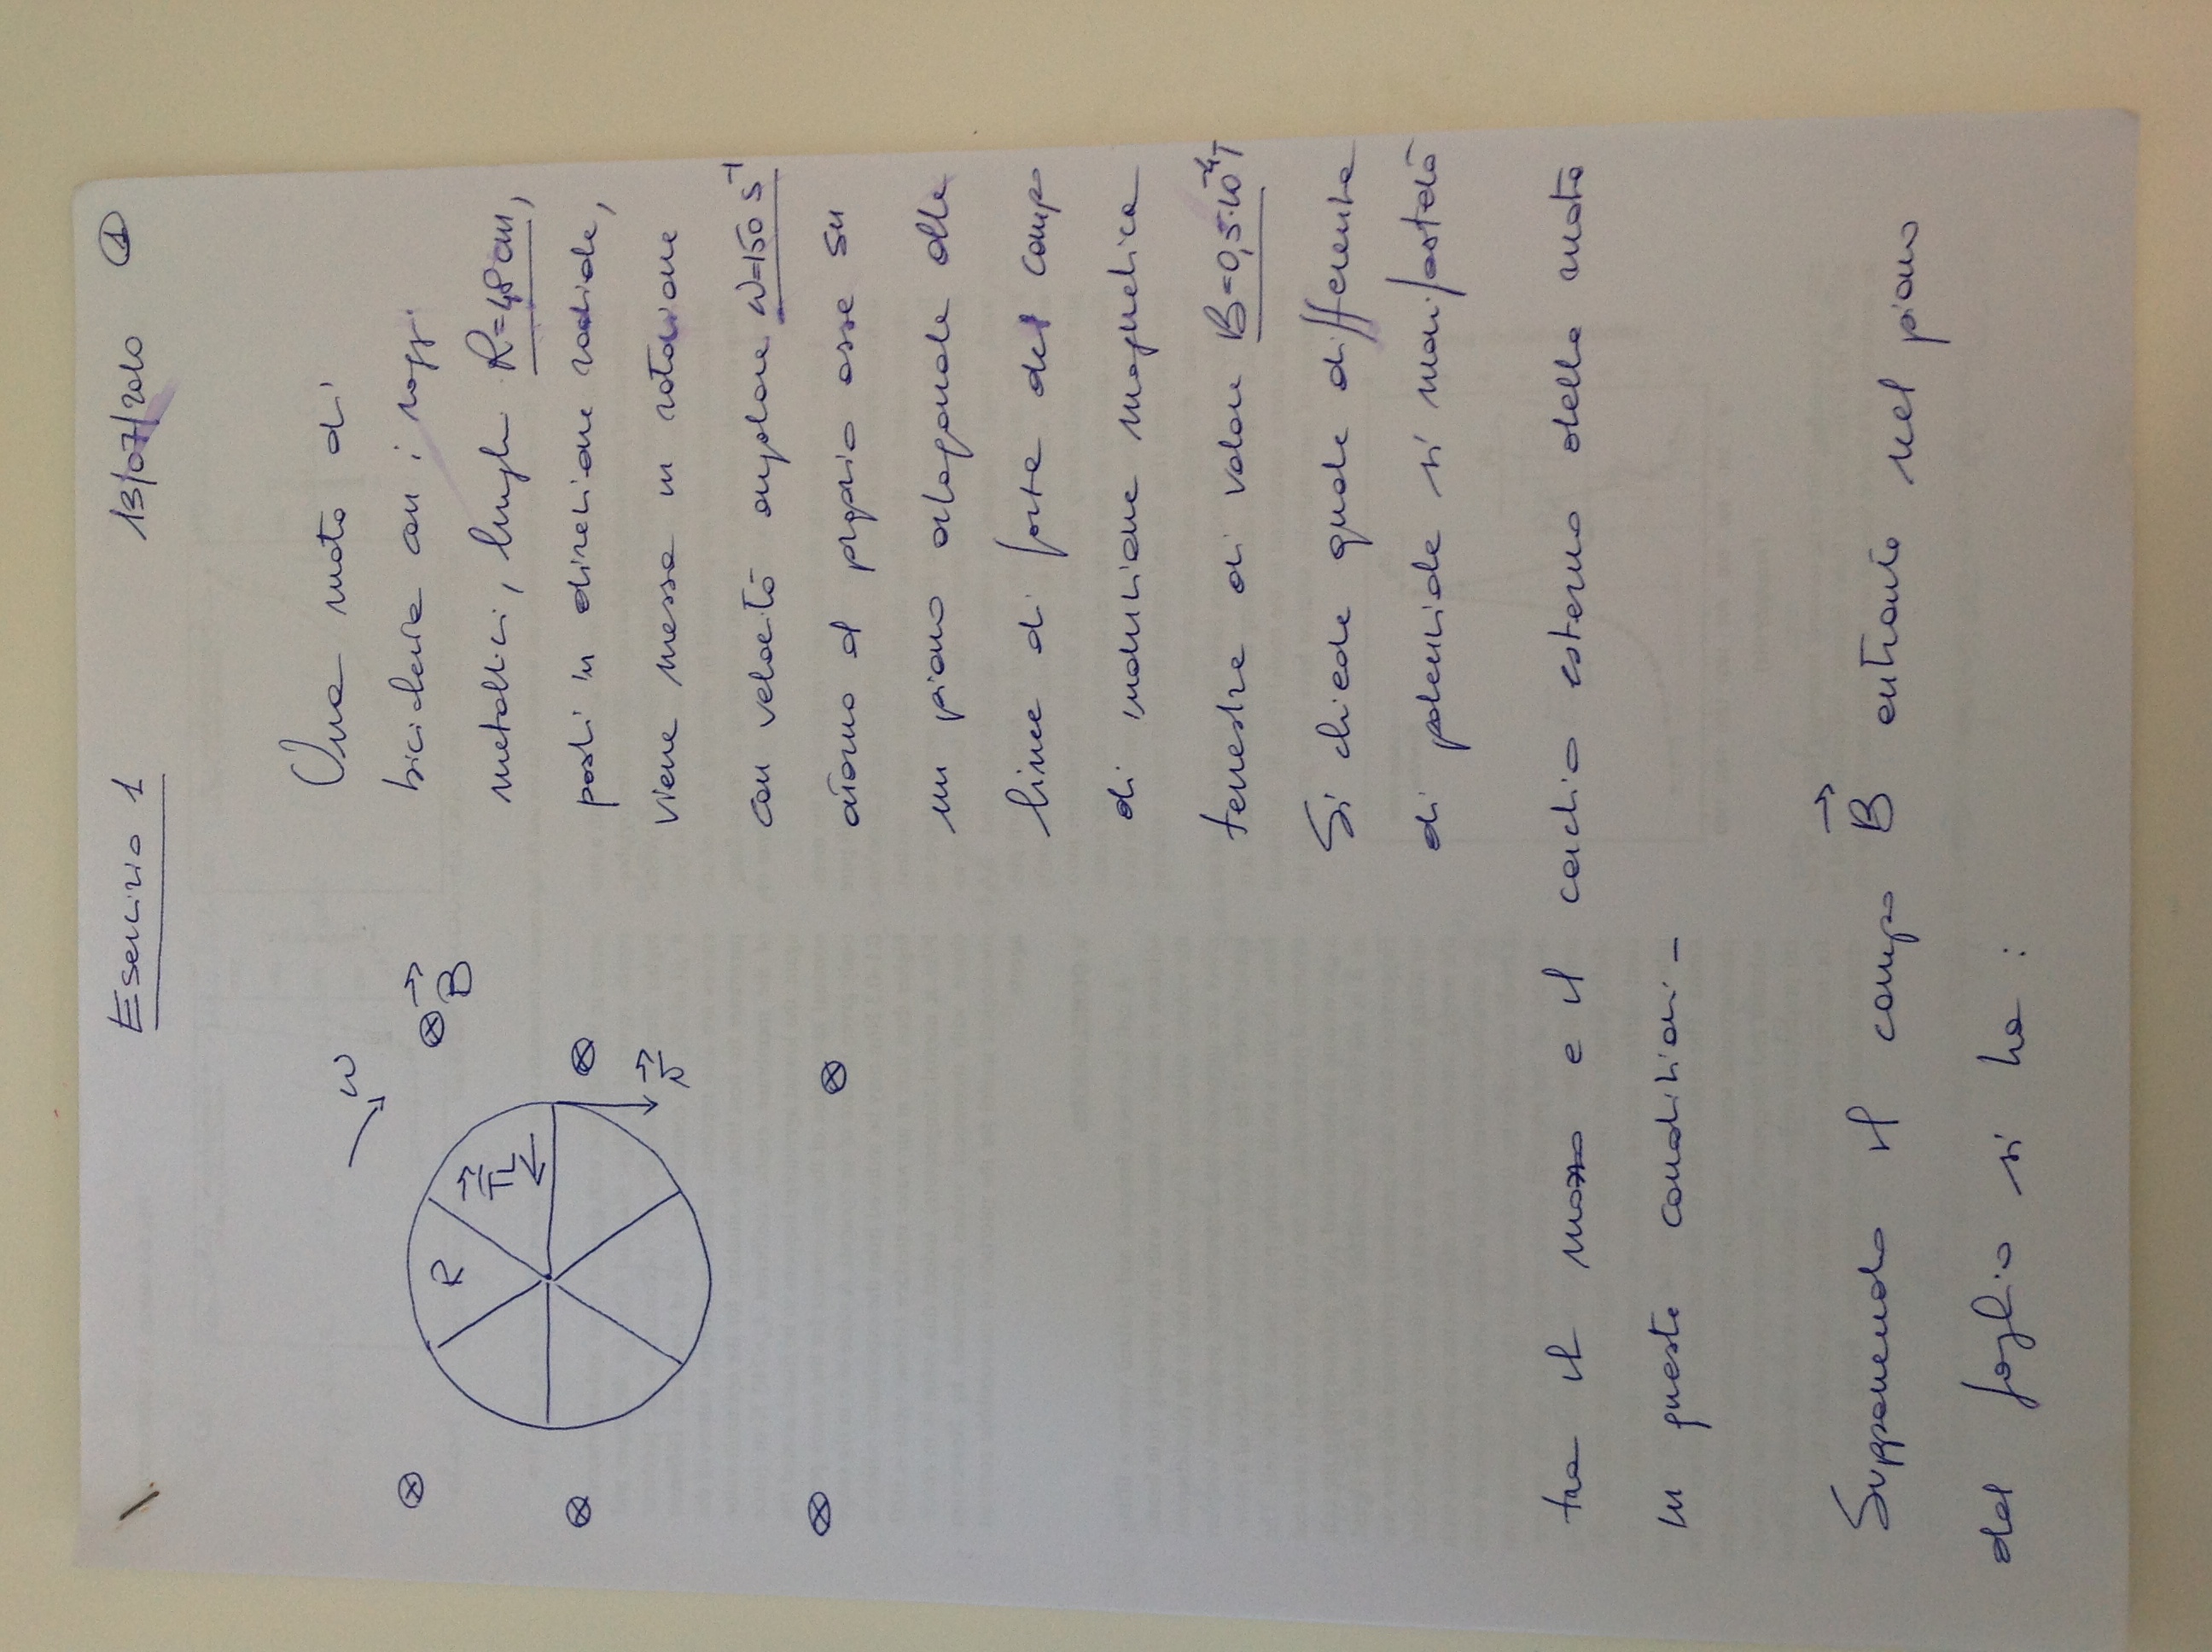 Esercizio 1
13/07/2010
1
ω
R
B
FL
v
Una ruota di
bicicletta con i raggi
metallici, lunghi R=48 cm,
posti in direzione radiale,
viene messa in rotazione
con velocità angolare ω=150 s⁻¹
attorno al proprio asse su
un piano ortogonale alle
linee di forza del campo
di induzione magnetica
terrestre di valore B=0,5·10⁻⁴T
Si chiede quale differenza
di potenziale si manifesterà
tra il mozzo e il cerchio esterno della ruota
in queste condizioni-
Supponendo il campo B entrante nel piano
del foglio si ha :